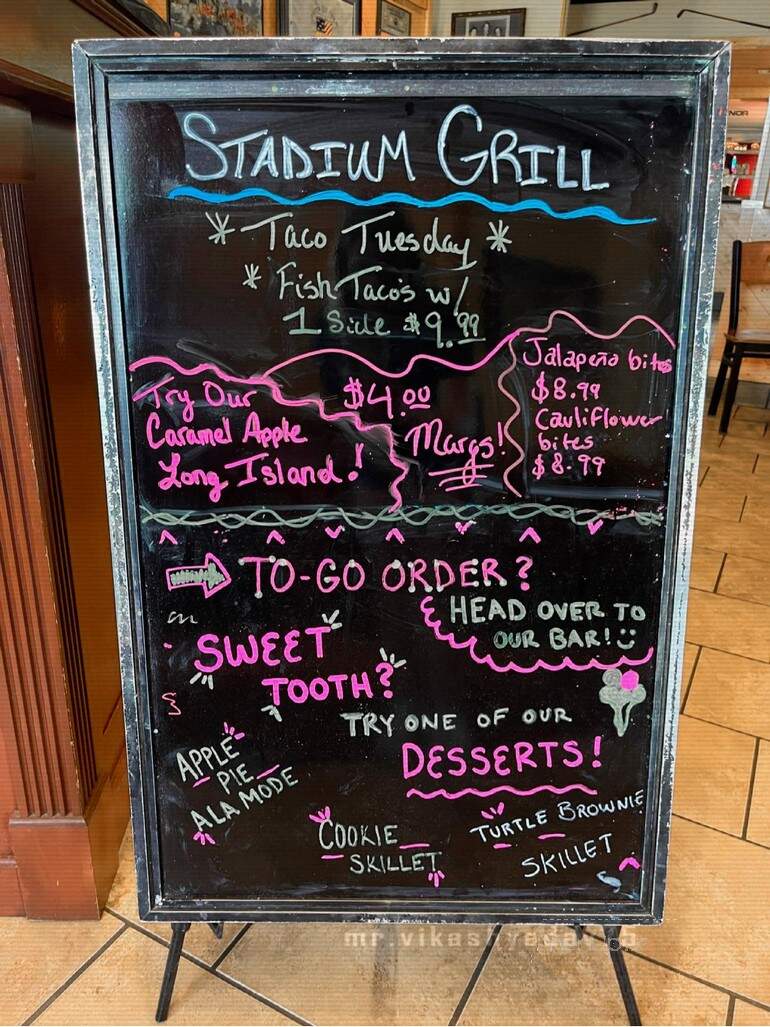 STADIUM GRILL
* Taco Tuesday *
* Fish Taco's w/
1 Side $9.99
Try Our
Caramel Apple
Long Island!
$4.00
Margs!
Jalapeño bites
$8.99
Cauliflower
bites
$8.99
TO-GO ORDER?
HEAD OVER TO
OUR BAR!
SWEET
TOOTH?
TRY ONE OF OUR
DESSERTS!
APPLE
PIE
ALA MODE
COOKIE
SKILLET
TURTLE BROWNIE
SKILLET